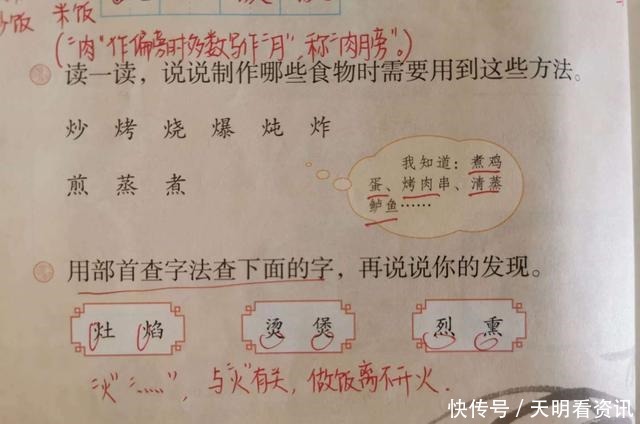 炒饭 米饭
("肉"作偏旁时多数写作"月",称"肉月旁"。)
读一读，说说制作哪些食物时需要用到这些方法。
炒 烤 烧 爆 炖 炸
煎 蒸 煮
我知道：煮鸡
蛋、烤肉串、清蒸
鲈鱼……
用部首查字法查下面的字，再说说你的发现。
灶 焰 烫 煲 烈 熏
"火""灬",与"火"有关,做饭离不开火.
快传号/天明看资讯